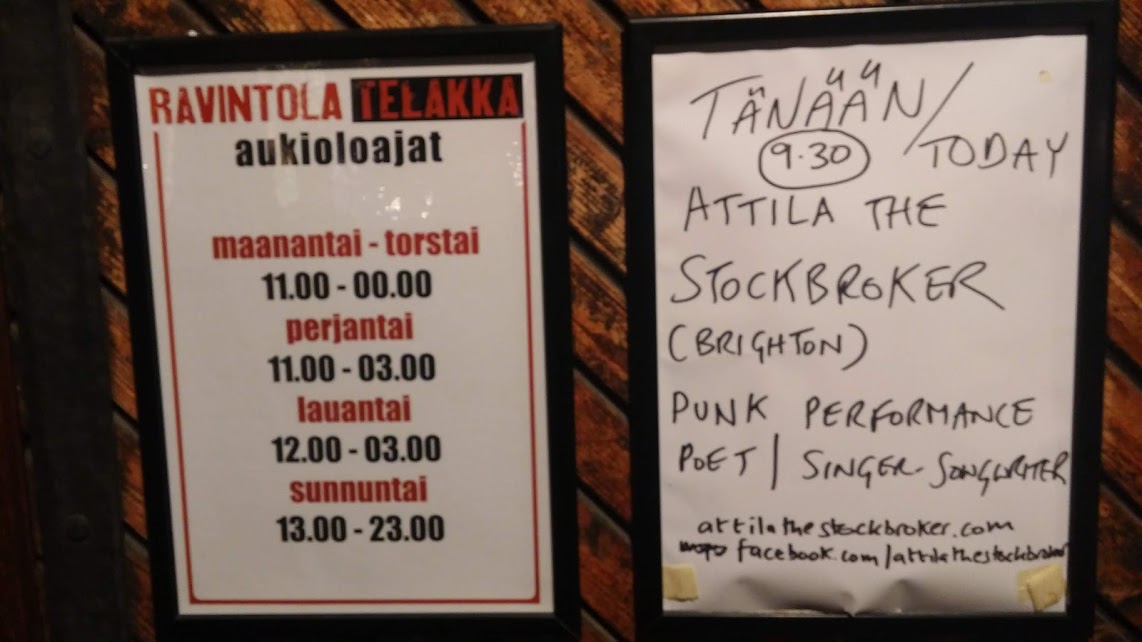 RAVINTOLA TELAKKA
aukioloajat
maanantai - torstai
11.00 - 00.00
perjantai
11.00 - 03.00
lauantai
12.00 - 03.00
sunnuntai
13.00 - 23.00
TÄNÄÄN/
9.30 TODAY
ATTILA THE
STOCKBROKER
(BRIGHTON)
PUNK PERFORMANCE
POET / SINGER-SONGWRITER
attilathestockbroker.com
facebook.com/attilathestockbroker